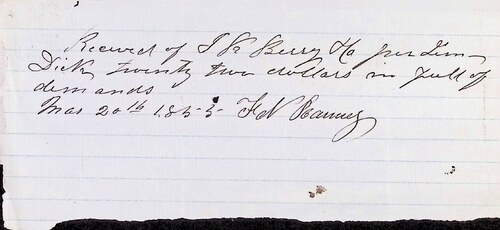 Recevd of J R Berry Ho per Jim
Dick twenty two dollars in full of
demands
Mar 20th 1855 F N Ranney